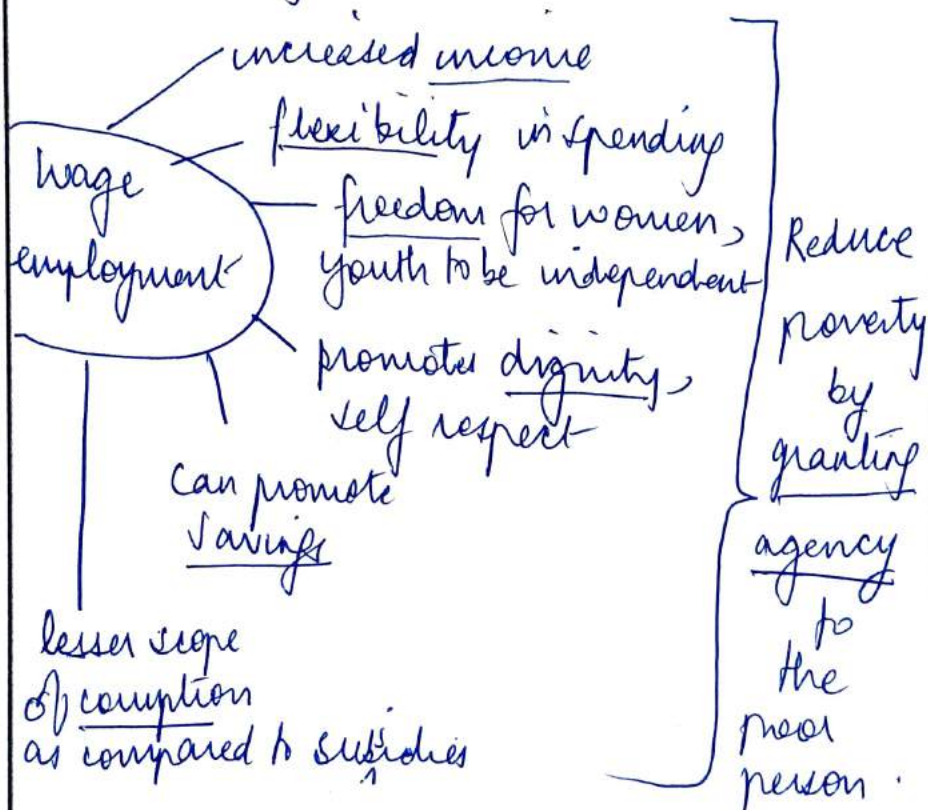 increased income
flexibility in spending
Wage
employment
freedom for women,
youth to be independent
promotes dignity,
self respect
Can promote
savings
lesser scope
of corruption
as compared to subsidies
Reduce
poverty
by
granting
agency
to
the
poor
person.